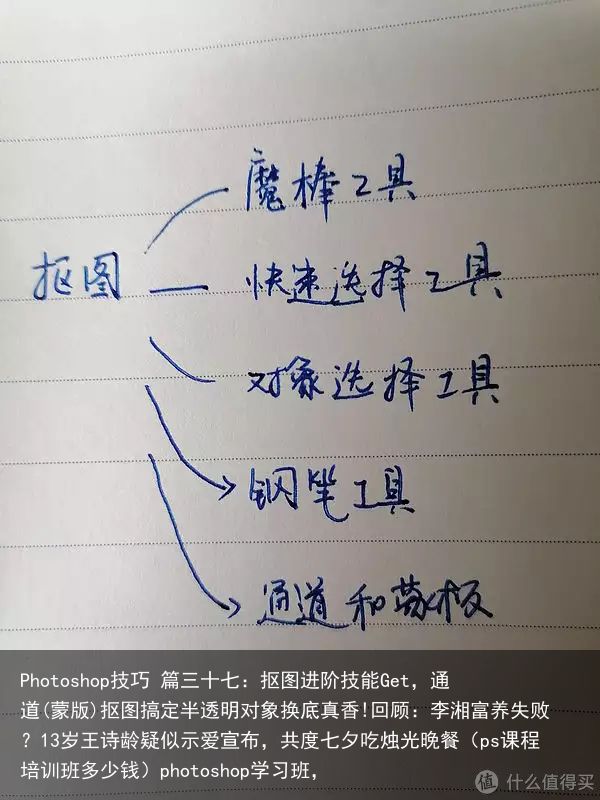 魔棒工具
抠图
快速选择工具
对象选择工具
钢笔工具
通道和蒙板
Photoshop技巧 篇三十七：抠图进阶技能Get，通
道(蒙版)抠图搞定半透明对象换底真香!回顾：李湘富养失败
？13岁王诗龄疑似示爱宣布，共度七夕吃烛光晚餐（ps课程
培训班多少钱）photoshop学习班，
值 什么值得买